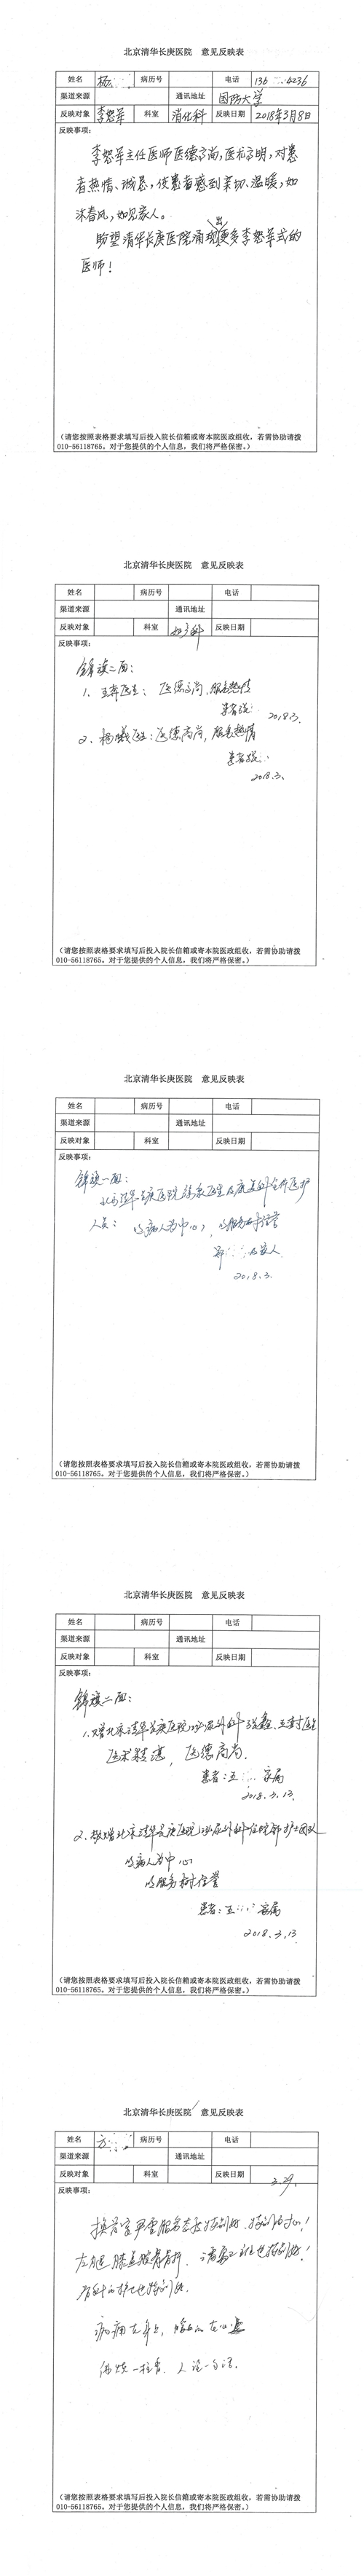 北京清华长庚医院 意见反映表
姓名 杨 病历号 电话 136 4236
渠道来源 通讯地址 国防大学
反映对象 李恕军 科室 消化科 反映日期 2018年3月8日
反映事项：
李恕军主任医师医德高尚，医术高明，对患
者热情、诚恳，使患者感到亲切、温暖，如
沐春风，如见家人。
盼望清华长庚医院涌现出更多李恕军式的
医师！
（请您按照表格要求填写后投入院长信箱或寄本院医政组收，若需协助请拨
010-56118765。对于您提供的个人信息，我们将严格保密。）
北京清华长庚医院 意见反映表
姓名 病历号 电话
渠道来源 通讯地址
反映对象 科室 妇产科 反映日期
反映事项：
锦旗二面：
1、医生：医德高尚，服务热情
患者 2018.3.
2、杨曦医生：医德高尚，服务热情
患者
2018.3.
（请您按照表格要求填写后投入院长信箱或寄本院医政组收，若需协助请拨
010-56118765。对于您提供的个人信息，我们将严格保密。）
北京清华长庚医院 意见反映表
姓名 病历号 电话
渠道来源 通讯地址
反映对象 科室 反映日期
反映事项：
锦旗一面：
北京清华长庚医院 医生及 科全体医护
人员：以病人为中心，以服务树信誉
家人
2018.3.
（请您按照表格要求填写后投入院长信箱或寄本院医政组收，若需协助请拨
010-56118765。对于您提供的个人信息，我们将严格保密。）
北京清华长庚医院 意见反映表
姓名 病历号 电话
渠道来源 通讯地址
反映对象 科室 反映日期
反映事项：
锦旗二面：
1、赠北京清华长庚医院泌尿外科 医生
医术精湛，医德高尚。
患者：王 家属
2018.3.13.
2、敬赠北京清华长庚医院泌尿外科住院部护士团队
以病人为中心
以服务树信誉
患者：王 家属
2018.3.13
（请您按照表格要求填写后投入院长信箱或寄本院医政组收，若需协助请拨
010-56118765。对于您提供的个人信息，我们将严格保密。）
北京清华长庚医院 意见反映表
姓名 方 病历号 电话
渠道来源 通讯地址
反映对象 科室 反映日期 3.29.
反映事项：
换药室 服务态度特别好，特别细心！
左腿膝盖 骨折， 也特别好！
骨科的护士也特别好。
病痛在身上，
佛烧一柱香，人说一句话。
（请您按照表格要求填写后投入院长信箱或寄本院医政组收，若需协助请拨
010-56118765。对于您提供的个人信息，我们将严格保密。）